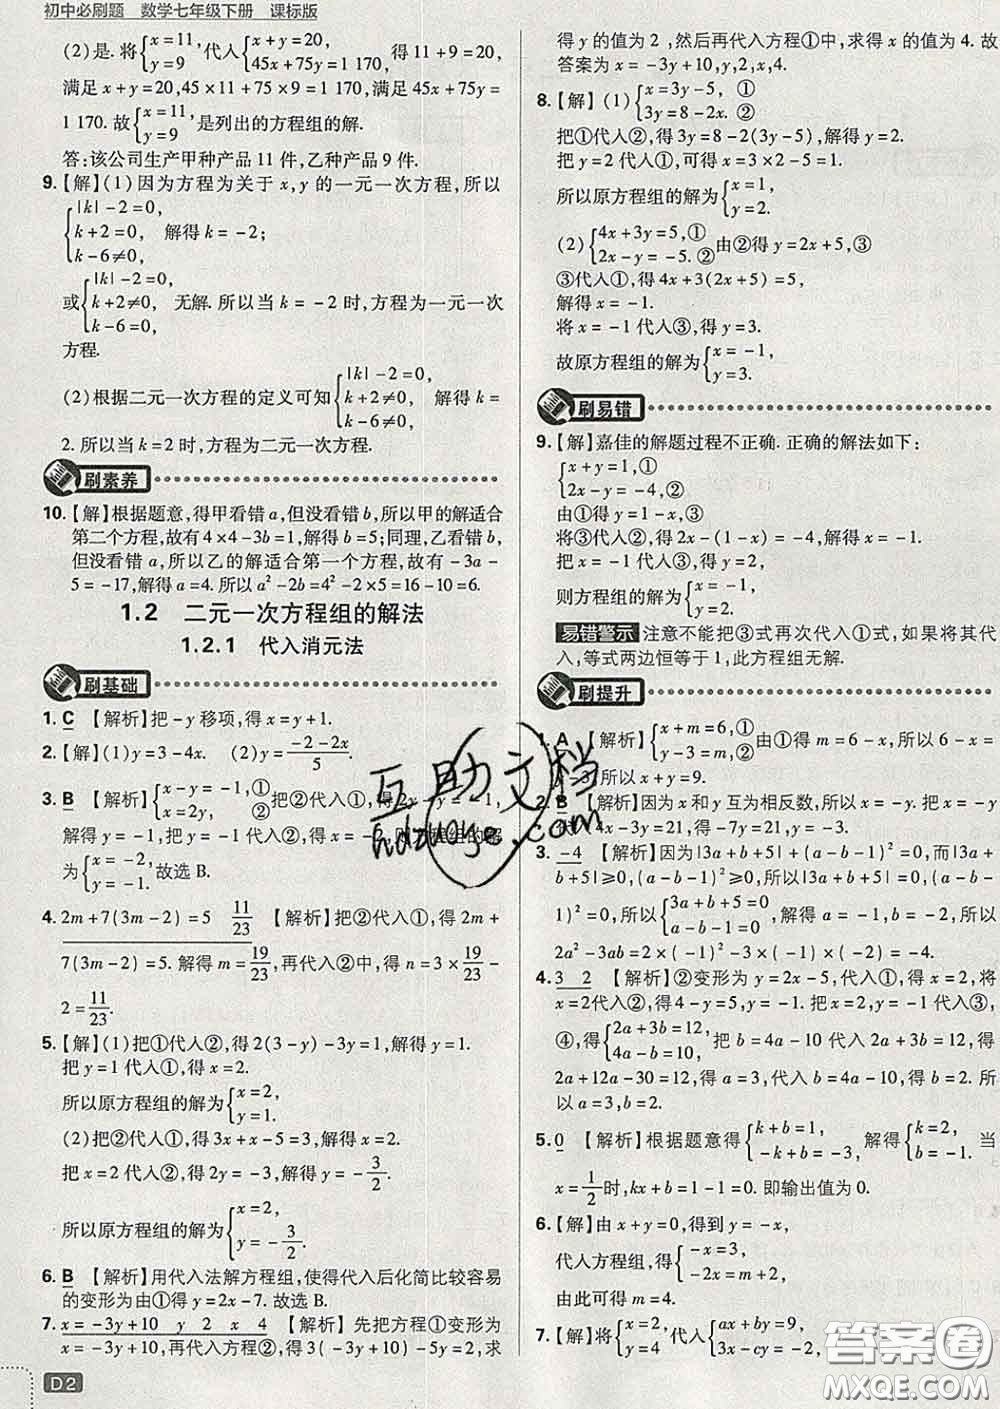 初中必刷题 数学七年级下册 课标版
(2)是.将{x=11, y=9 代入{x+y=20, 45x+75y=1 170, 得11+9=20,
满足x+y=20,45×11+75×9=1 170满足45x+75y=
1 170.故{x=11, y=9 是列出的方程组的解.
答:该公司生产甲种产品11件,乙种产品9件.
9.【解】(1)因为方程为关于x,y的一元一次方程,所以
{|k|-2=0, k+2=0, k-6≠0, 解得k=-2;
或{|k|-2=0, k+2≠0, k-6=0, 无解.所以当k=-2时,方程为一元一次
方程.
(2)根据二元一次方程的定义可知{|k|-2=0, k+2≠0, k-6≠0, 解得k=
2.所以当k=2时,方程为二元一次方程.
刷素养
10.【解】根据题意,得甲看错a,但没看错b,所以甲的解适合
第二个方程,故有4×4-3b=1,解得b=5;同理,乙看错b,
但没看错a,所以乙的解适合第一个方程,故有-3a-
5=-17,解得a=4.所以a²-2b=4²-2×5=16-10=6.
1.2 二元一次方程组的解法
1.2.1 代入消元法
刷基础
1. C 【解析】把-y移项,得x=y+1.
2.【解】(1)y=3-4x. (2)y=(-2-2x)/5.
3. B 【解析】{x-y=-1,① x=2y, ② 把②代入①,得2y-y=-1,
解得y=-1,把y=-1代入②,得x=-2,则方程组的解
为{x=-2, y=-1. 故选B.
4. 2m+7(3m-2)=5 11/23 【解析】把②代入①,得2m+
7(3m-2)=5.解得m=19/23,再代入②中,得n=3×19/23-
2=11/23.
5.【解】(1)把①代入②,得2(3-y)-3y=1,解得y=1.
把y=1代入①,得x=2.
所以原方程组的解为{x=2, y=1.
(2)把②代入①,得3x+x-5=3,解得x=2.
把x=2代入②,得2-2y=5,解得y=-3/2.
所以原方程组的解为{x=2, y=-3/2.
6. B 【解析】用代入法解方程组,使得代入后化简比较容易
的变形为由①得y=2x-7.故选B.
7. x=-3y+10 y 2 x 4 【解析】先把方程①变形为
x=-3y+10,再代入方程②,得3(-3y+10)-5y=2,求
D2
得y的值为2,然后再代入方程①中,求得x的值为4.故
答案为x=-3y+10,y,2,x,4.
8.【解】(1){x=3y-5, ① 3y=8-2x. ②
把①代入②,得3y=8-2(3y-5),解得y=2.
把y=2代入①,可得x=3×2-5=1.
所以原方程组的解为{x=1, y=2.
(2){4x+3y=5,① 2x-y=-5.② 由②得y=2x+5,③
③代入①,得4x+3(2x+5)=5,
解得x=-1.
将x=-1代入③,得y=3.
故原方程组的解为{x=-1, y=3.
刷易错
9.【解】嘉佳的解题过程不正确.正确的解法如下:
{x+y=1,① 2x-y=-4,②
由①得y=1-x,③
将③代入②,得2x-(1-x)=-4,
解得x=-1.
把x=-1代入③,得y=2,
则方程组的解为{x=-1, y=2.
易错警示 注意不能把③式再次代入①式,如果将其代
入,等式两边恒等于1,此方程组无解.
刷提升
1. A 【解析】{x+m=6,① y-3=m,② 由①得m=6-x,所以6-x=
y-3,所以x+y=9.
2. B 【解析】因为x和y互为相反数,所以x=-y.把x=-y
代入4x-3y=21,得-7y=21,y=-3.
3. -4 【解析】因为|3a+b+5|+(a-b-1)²=0,而|3a+
b+5|≥0,(a-b-1)²≥0,所以|3a+b+5|=0,(a-b-
1)²=0,所以{3a+b+5=0 a-b-1=0, 解得a=-1,b=-2,所以
2a²-3ab=2×(-1)²-3×(-1)×(-2)=-4.
4. 3 2 【解析】②变形为y=2x-5,代入①,得x=2,将
x=2代入②,得4-y=5,y=-1.把x=2,y=-1代入③,
④,得{2a+3b=12, 4a-b=10, 把b=4a-10代入2a+3b=12,得
2a+12a-30=12,得a=3,代入b=4a-10,得b=2.所
以a=3,b=2.
5. 0 【解析】根据题意得{k+b=1, -k+b=-3, 解得{k=2, b=-1. 当
x=1/2时,kx+b=1-1=0.即输出值为0.
6.【解】由x+y=0,得到y=-x,
代入方程组,得{-x=3, -2x=m+4,
由此可得m=-10.
7.【解】将{x=2, y=3 代入{ax+by=9, 3x-cy=-2,
互助文档
hdzuoye.com
答案圈
MXQE.COM